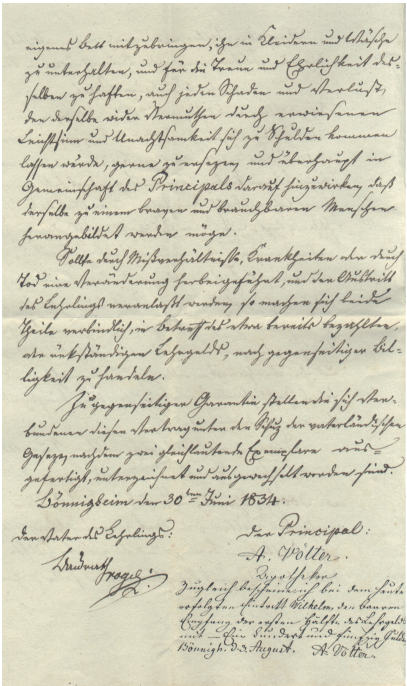 eigenes Bett mitzubringen, ihn in Kleidern und Wäsche
zu unterhalten, und für die Treue und Ehrlichkeit des-
selben zu haften, auch jeden Schaden und Verlust,
den derselbe wider Vermuthen durch erwiesenen
Leichtsinn und Unachtsamkeit sich zu Schulden kommen
lassen würde, gerne zu ersezen, und überhaupt in
Gemeinschaft des Principals darauf hinzuwirken, daß
derselbe zu einem braven und brauchbaren Menschen
herangebildet werden möge.
Sollte durch Mißverhältnisse, Krankheiten oder durch
Tod eine Veränderung herbeigeführt, und der Austritt
des Lehrlings veranlaßt werden, so machen sich beide
Theile verbindlich, in Betreff des etwa bereits bezahlten
oder rükständigen Lehrgelds, nach gegenseitiger Bil-
ligkeit zu handeln.
Zu gegenseitiger Garantie stellen die sich Ver-
bundenen diesen Vertrag unter den Schuz der vaterländischen
Geseze, nachdem zwei gleichlautende Exemplare aus-
gefertigt, unterzeichnet und ausgewechselt worden sind.
Bönnigheim den 30ten Juni 1834.
Der Vater des Lehrlings:
Der Principal:
A. Völter.
Apotheker
Zugleich bescheine ich bei dem heute
erfolgten Eintritt Wilhelms, den baaren
Empfang der ersten Hälfte des Lehrgelds
mit – Ein Hundert und fünfzig Gulden
Bönnigh. d. 3. August. A. Völter